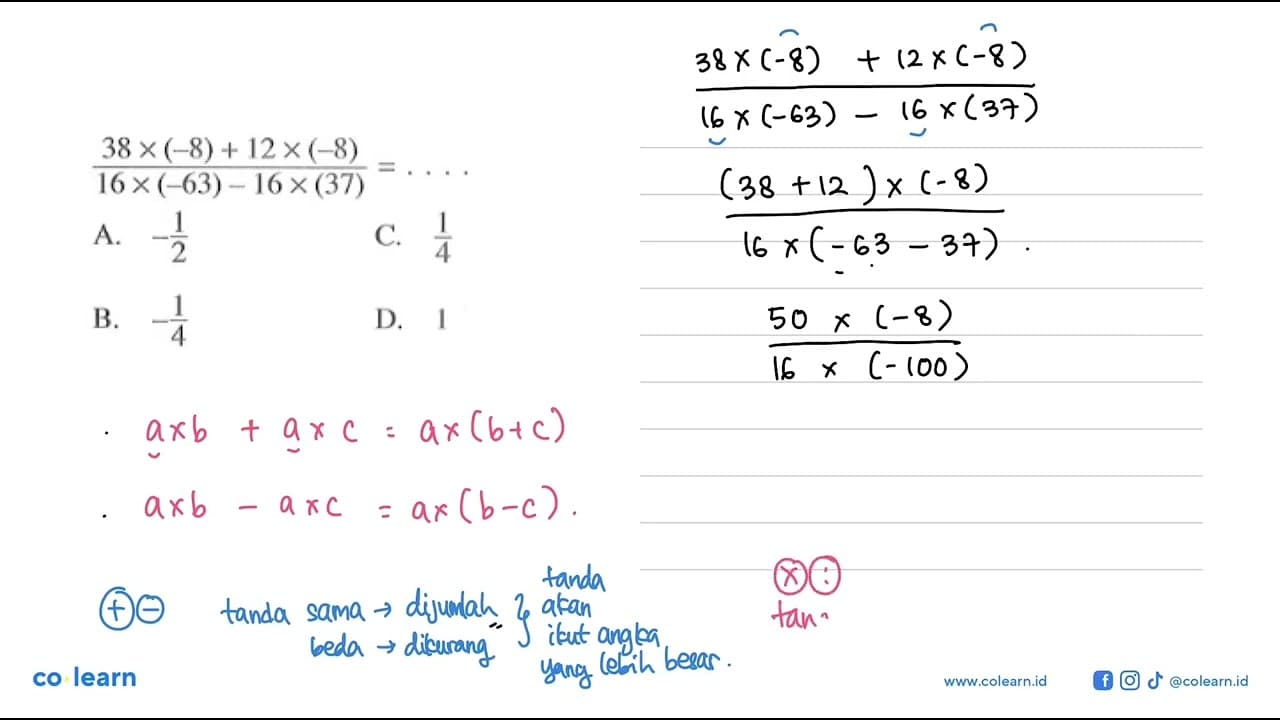 38 × (–8) + 12 × (–8)
16 × (–63) – 16 × (37)
= . . . .
A. –1/2
C. 1/4
B. –1/4
D. 1
a×b + a×c = a×(b+c)
a×b - a×c = a×(b-c).
+ -
tanda sama → dijumlah
beda → dikurang
tanda
akan
ikut angka
yang lebih besar.
38 × (-8) + 12 × (-8)
16 × (-63) - 16 × (37)
(38 + 12) × (-8)
16 × (-63 - 37)
50 × (-8)
16 × (-100)
× :
tan
co learn
www.colearn.id
@colearn.id